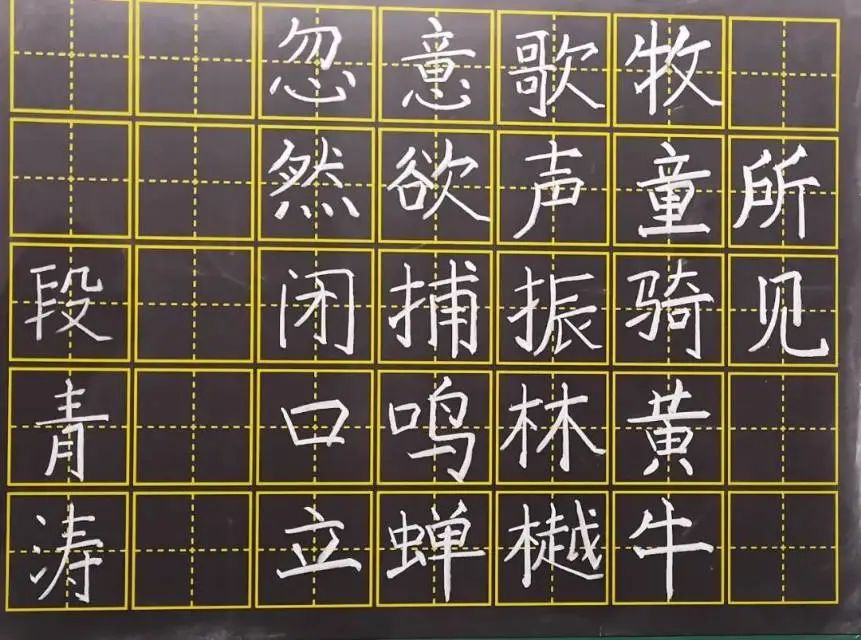 所见
牧童骑黄牛
歌声振林樾
意欲捕鸣蝉
忽然闭口立
段青涛